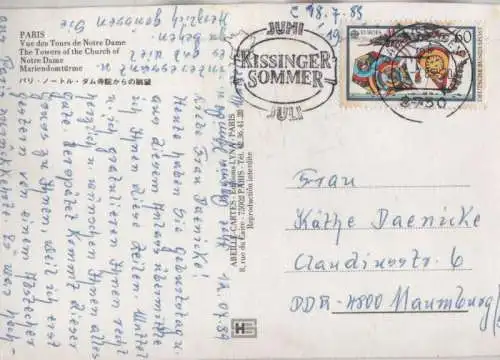 PARIS
Vue des Tours de Notre Dame
The Towers of the Church of
Notre Dame
Mariendomtürme
パリ・ノートル・ダム寺院からの眺望
C 18.7.89
JUNI
KISSINGER
SOMMER
JULI
EUROPA
60
DEUTSCHE BUNDESPOST
8730
ABEILLE-CARTES - Editions LYNA-PARIS
8, rue du Caire - 75002 PARIS - Tél. 42.36.41.28
Reproduction interdite
12.07.89
Liebe Frau Daenicke!
Heute haben Sie Geburtstag u.
aus diesem Anlass übermittle
ich Ihnen diese Zeilen. Mutti
u. ich gratulieren Ihnen recht
herzlich u. wünschen Ihnen alles
Gute. Verspätet kommt dieser
Gruss zu Ihnen, weil ich erst
gestern von einem Abstecher
aus Paris zurückkehrte. Es war hoch-
interessant
Frau
Käthe Daenicke
Claudiusstr. 6
DDR-4800 Naumburg/
HS